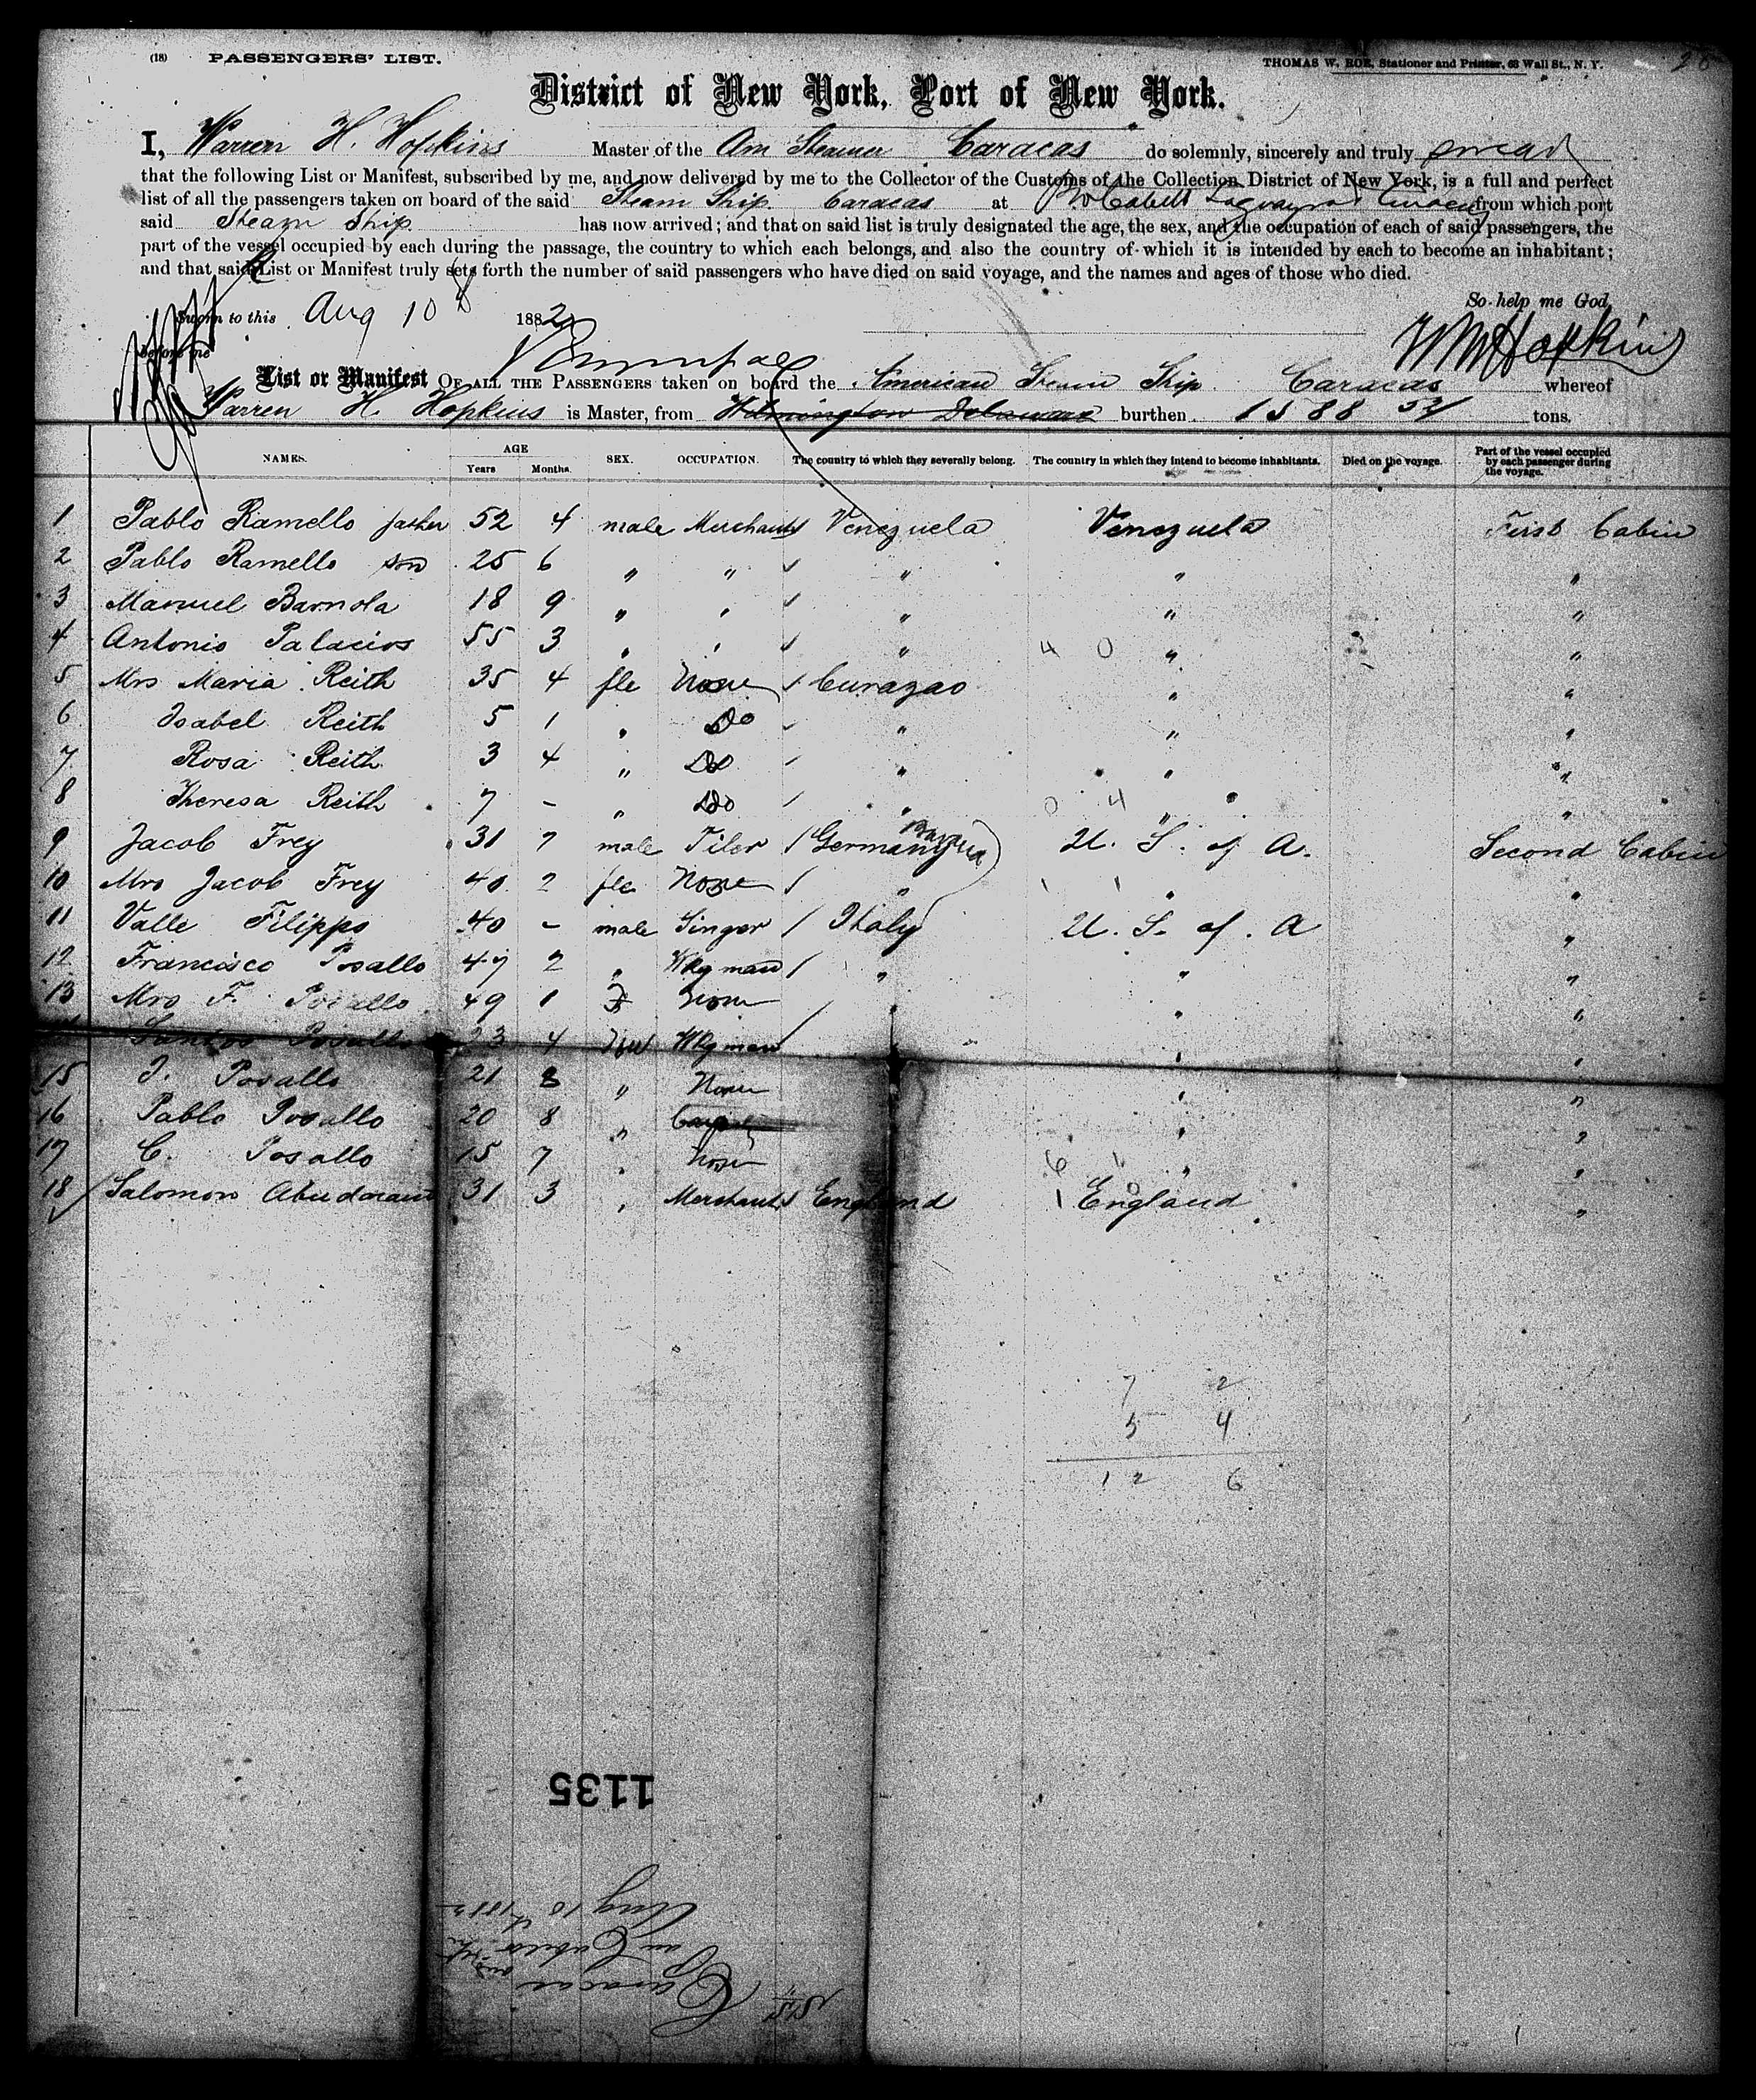 (18) PASSENGERS' LIST. THOMAS W. ROE, Stationer and Printer, 63 Wall St., N. Y.
District of New York, Port of New York.
I, Warren H. Hopkins Master of the Am Steamer Caracas do solemnly, sincerely and truly swear
that the following List or Manifest, subscribed by me, and now delivered by me to the Collector of the Customs of the Collection District of New York, is a full and perfect
list of all the passengers taken on board of the said Steam Ship Caracas at Po Cabello Laguayra from which port
said Steam Ship has now arrived; and that on said list is truly designated the age, the sex, and the occupation of each of said passengers, the
part of the vessel occupied by each during the passage, the country to which each belongs, and also the country of which it is intended by each to become an inhabitant;
and that said List or Manifest truly sets forth the number of said passengers who have died on said voyage, and the names and ages of those who died.
So help me God,
Sworn to this Aug 10 1882
before me W H Hopkins
List or Manifest OF ALL THE PASSENGERS taken on board the American Steam Ship Caracas whereof
Warren H. Hopkins is Master, from Wilmington Delaware burthen 1588 tons.
NAMES. AGE Years Months. SEX. OCCUPATION. The country to which they severally belong. The country in which they intend to become inhabitants. Died on the voyage. Part of the vessel occupied by each passenger during the voyage.
1 Pablo Ramello father 52 4 male Merchant Venezuela Venezuela First Cabin
2 Pablo Ramello son 25 6 " " " " "
3 Manuel Barnola 18 9 " " " " "
4 Antonio Palacios 55 3 " " " 4 0 " "
5 Mrs Maria Reith 35 4 fle None Curazao " "
6 Isabel Reith 5 1 " Do " " "
7 Rosa Reith 3 4 " Do " " "
8 Theresa Reith 7 - " Do " 0 4 " "
9 Jacob Frey 31 7 male Tiler Germany U. S. of A. Second Cabin
10 Mrs Jacob Frey 40 2 fle None " 1 1 " "
11 Valle Filippo 40 - male Singer Italy U. S. of. A "
12 Francisco Posallo 47 2 " Wkg man " " "
13 Mrs F. Posallo 49 1 F None " " "
Santos Posallo 23 4 Wkg man " " "
15 J. Posallo 21 8 " None " "
16 Pablo Posallo 20 8 " " "
17 C. Posallo 15 7 " None 6 1 " "
18 Salomon 31 3 " Merchant England 1 0 England "
7 2
5 4
12 6
1135
Aug 10 1882
Caracas